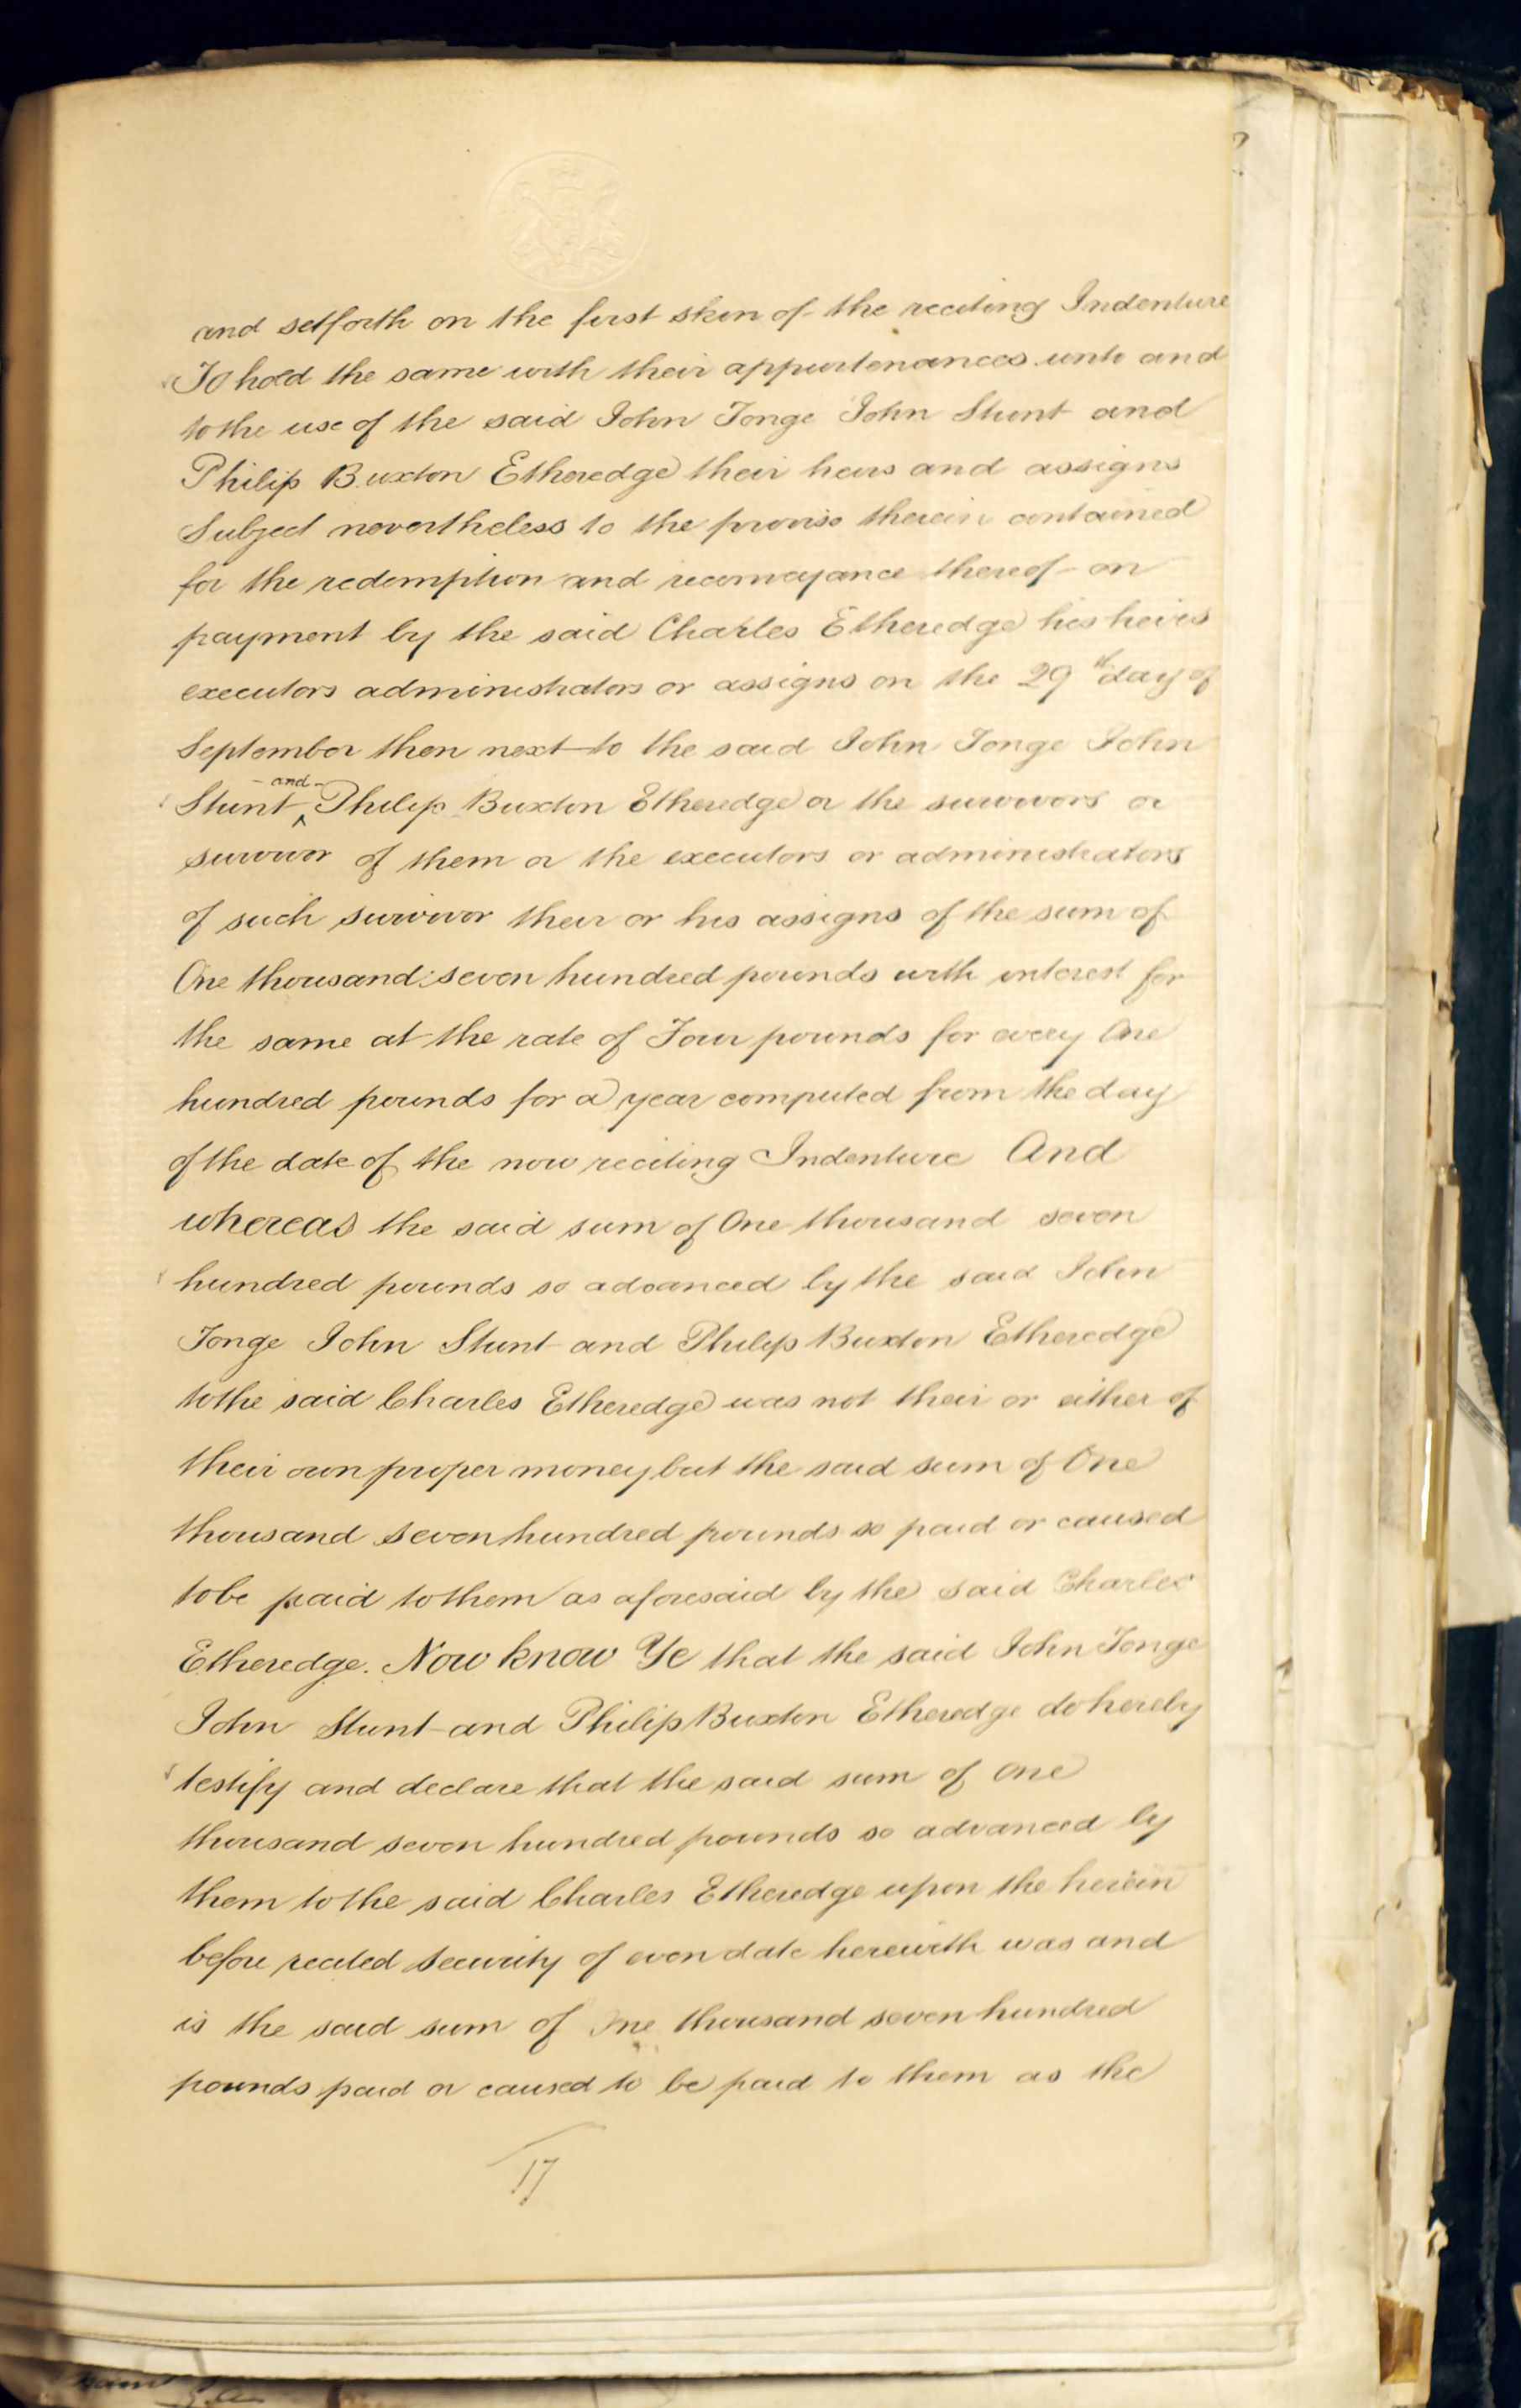 and setforth on the first skin of the reciting Indenture
To hold the same with their appurtenances unto and
to the use of the said John Tonge John Stunt and
Philip Buxton Etheredge their heirs and assigns
Subject nevertheless to the proviso therein contained
for the redemption and reconveyance thereof on
payment by the said Charles Etheredge his heirs
executors administrators or assigns on the 29th day of
September then next to the said John Tonge John
Stunt and Philip Buxton Etheredge or the survivors or
survivor of them or the executors or administrators
of such survivor their or his assigns of the sum of
One thousand seven hundred pounds with interest for
the same at the rate of Four pounds for every One
hundred pounds for a year computed from the day
of the date of the now reciting Indenture And
whereas the said sum of One thousand seven
hundred pounds so advanced by the said John
Tonge John Stunt and Philip Buxton Etheredge
to the said Charles Etheredge was not their or either of
their own proper money but the said sum of One
thousand seven hundred pounds so paid or caused
to be paid to them as aforesaid by the said Charles
Etheredge. Now know Ye that the said John Tonge
John Stunt and Philip Buxton Etheredge do hereby
testify and declare that the said sum of One
thousand seven hundred pounds so advanced by
them to the said Charles Etheredge upon the herein
before recited security of even date herewith was and
is the said sum of One thousand seven hundred
pounds paid or caused to be paid to them as the
17